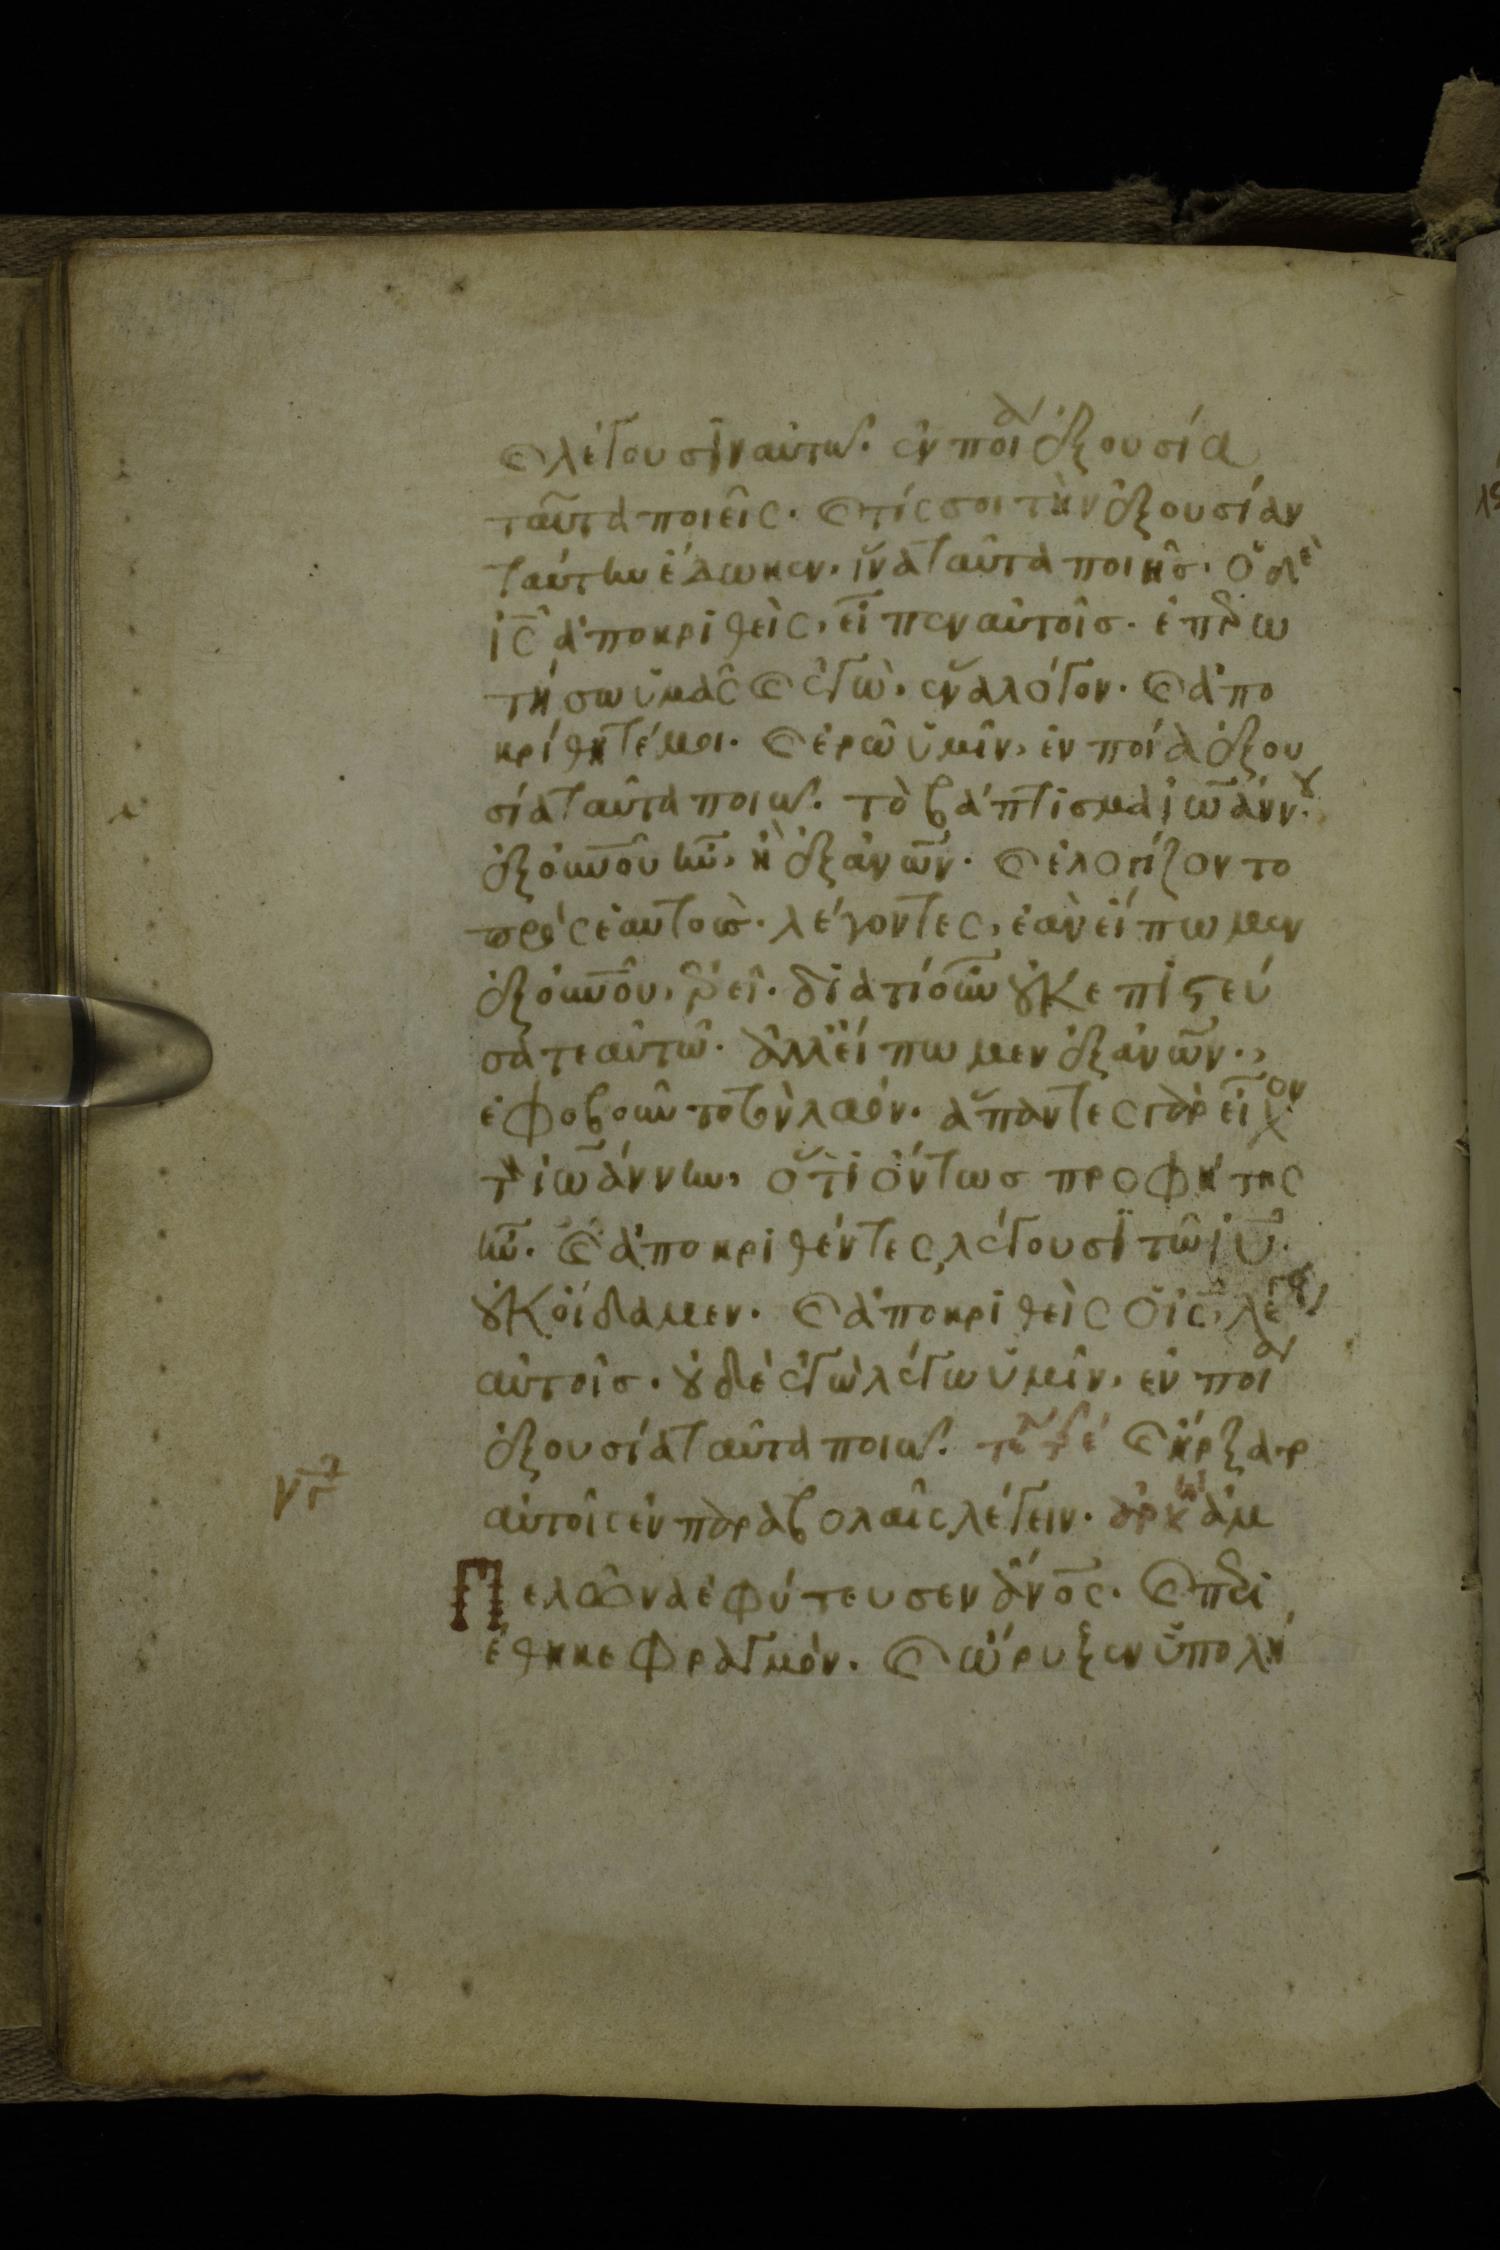 ϗ λέγουσιν αὐτῶ. ἐν ποίᾳ ἐξουσία
ταῦτα ποιεῖς. ϗ τίς σοι τὴν ἐξουσίαν
ταύτην ἔδωκεν. ἵνα ταῦτα ποιῆς. ὁ δὲ
ι̅ς̅ ἀποκριθεὶς, εἶπεν αὐτοῖς. ἐπερω
τήσω ὑμᾶς ϗ ἐγὼ, ἕνα λόγον. ϗ ἀπο
κρίθητέ μοι. ϗ ἐρῶ ὑμῖν, ἐν ποία ἐξου
σία ταῦτα ποιῶ. τὸ βάπτισμα ἰωάννȣ.
ἐξ ο̅υ̅ν̅ο̅υ̅ ἦν, ἢ ἐξ α̅ν̅ω̅ν̅. ϗ ἐλογίζοντο
πρὸς ἑαυτοὺς. λέγοντες, ἐὰν εἴπωμεν
ἐξ ο̅υ̅ν̅ο̅υ̅, ἐρεῖ. διατί οὖν ȣκ ἐπιστεύ
σατε αὐτῶ. ἀλλ εἴπωμεν ἐξ α̅ν̅ω̅ν̅.,
ἐφοβοῦντο τὸν λαόν. ἅπαντες γὰρ εἶχον
τὸν ἰωάννην, ὅτι ὄντως προφήτης
ἦν. ϗ ἀποκριθέντες, λέγουσι τῶ ι̅υ̅.
ȣκ οἴδαμεν. ϗ ἀποκριθεὶς ὁ ι̅ς̅, λέγει
αὐτοῖς. ȣδὲ ἐγὼ λέγω ὑμῖν, ἐν ποίᾳ
ἐξουσία ταῦτα ποιῶ. ϗ ἤρξατο
αὐτοῖς ἐν παραβολαῖς λέγειν. ἀρχὴ ἀμ
πελῶνα ἐφύτευσεν α̅ν̅ο̅ς̅. ϗ περι
έθηκε φραγμόν. ϗ ὤρυξεν ὑπολή